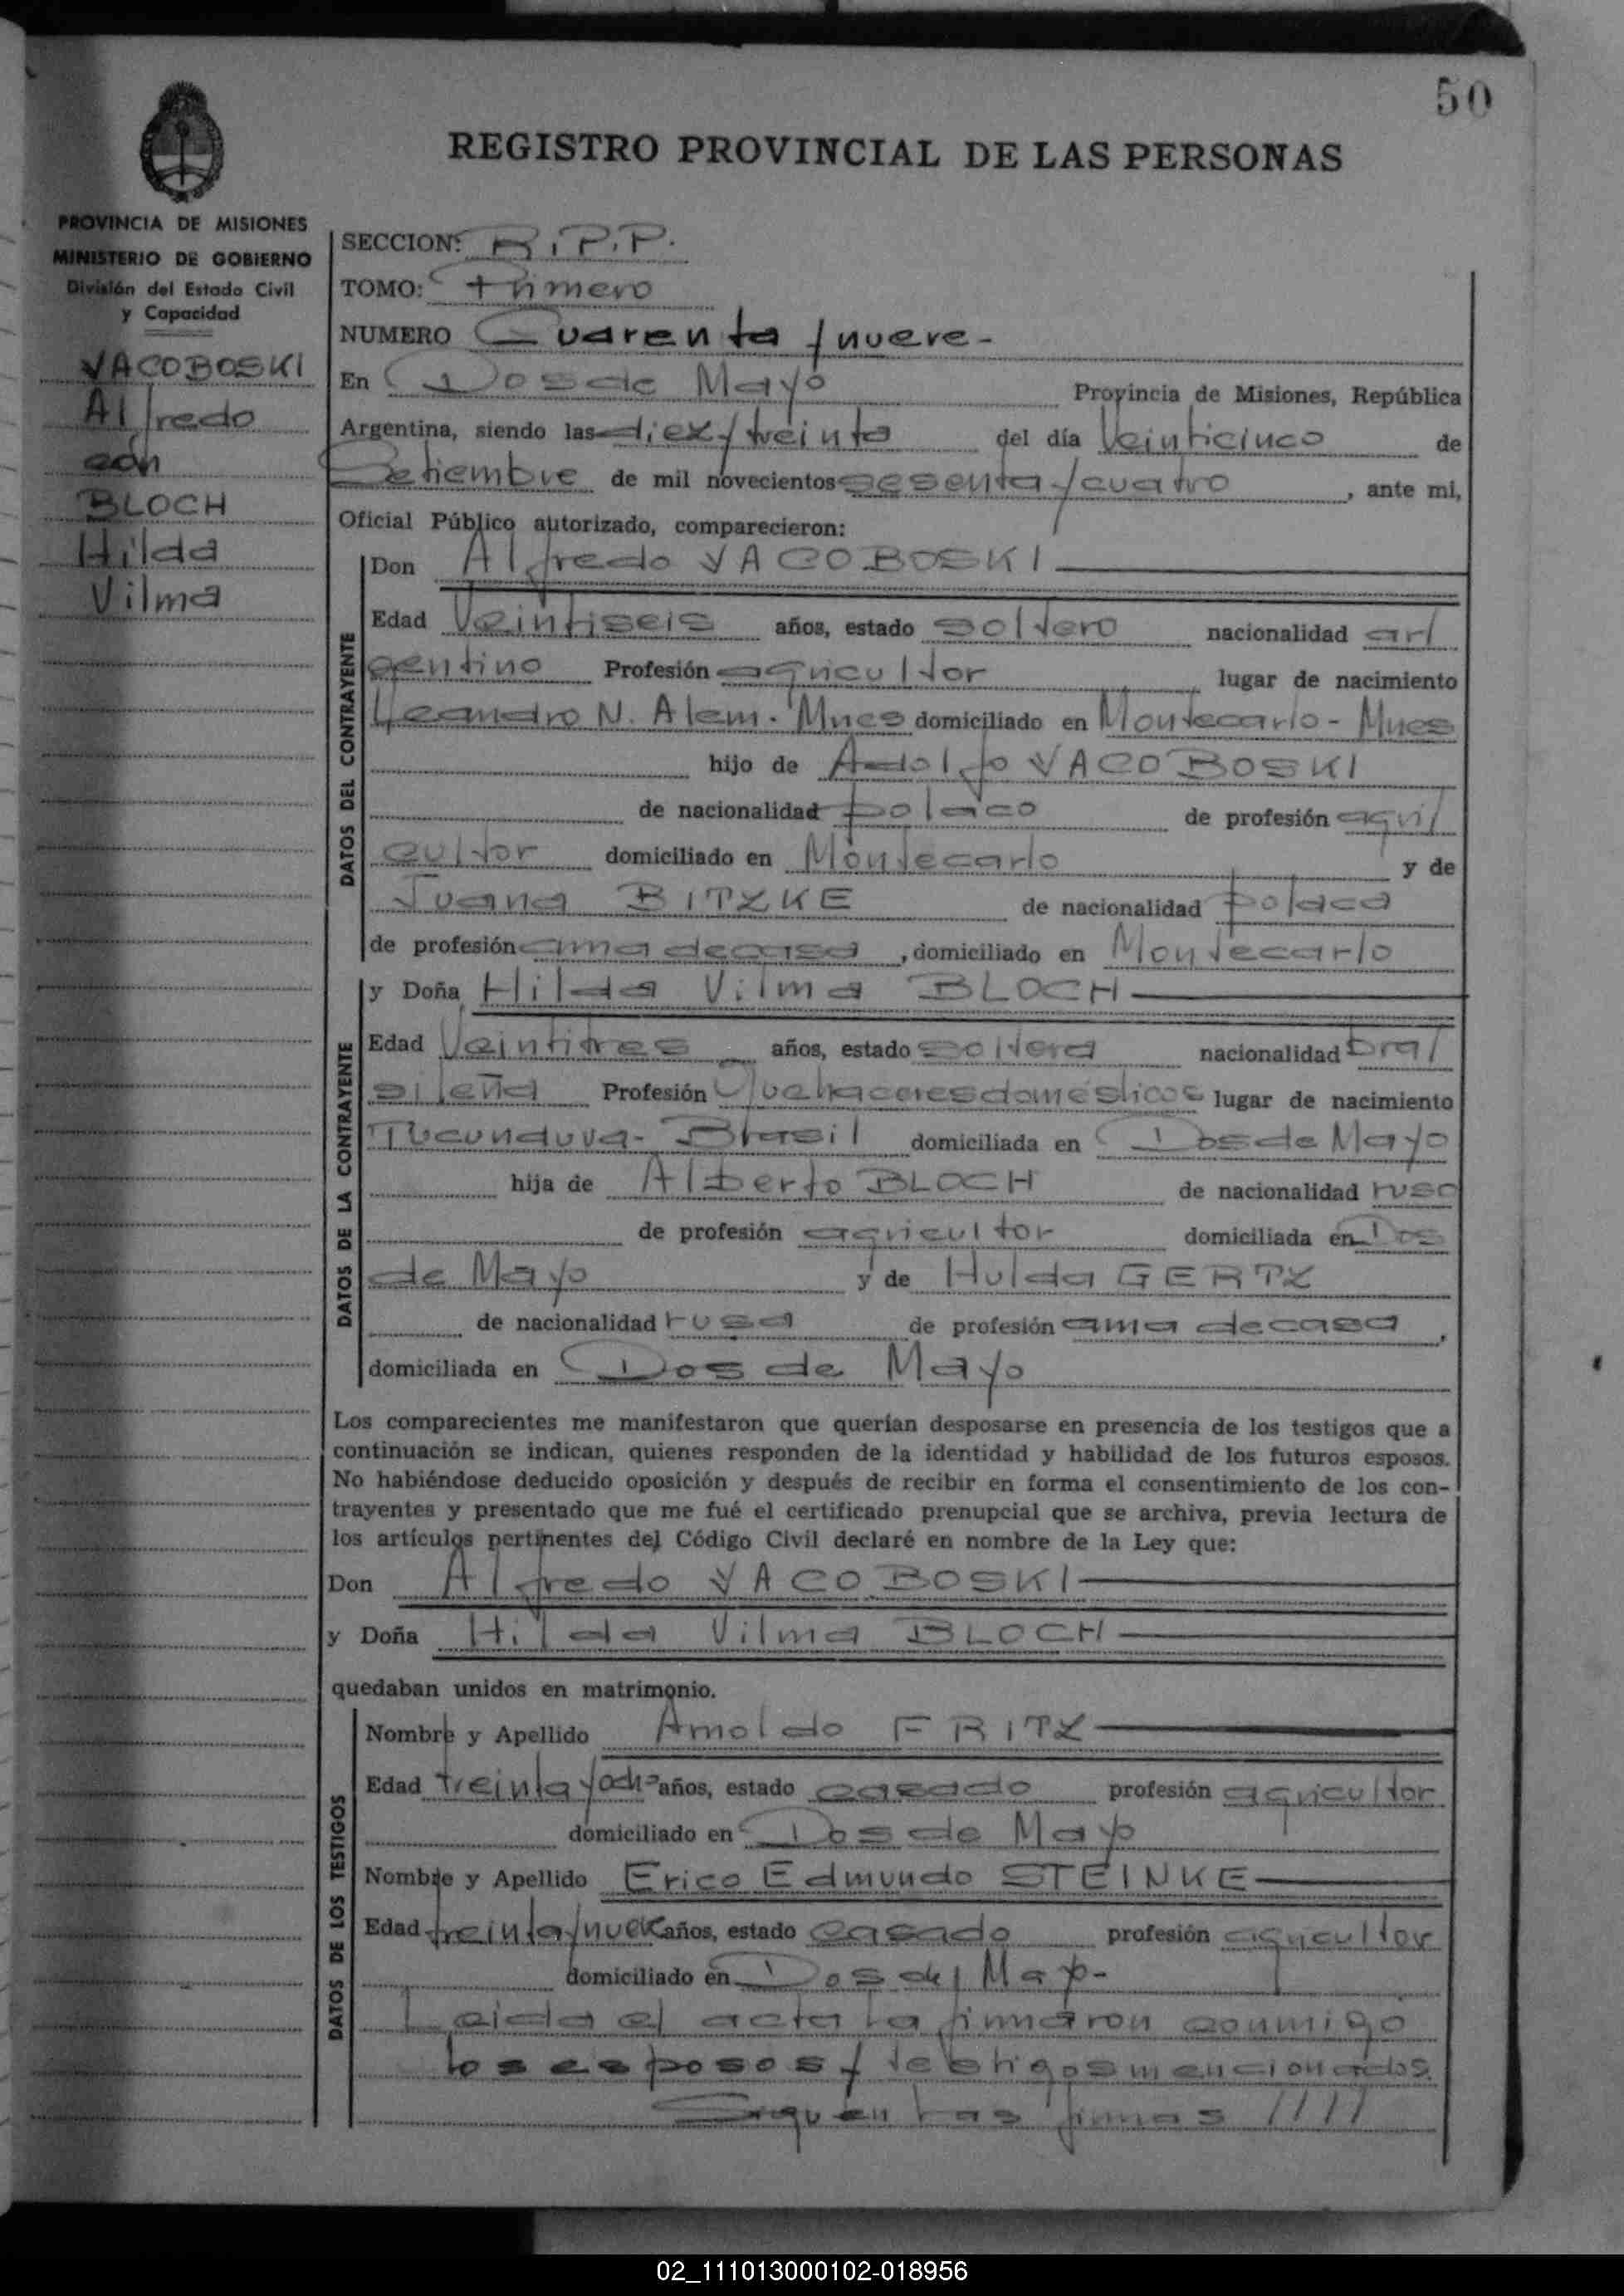 50
REGISTRO PROVINCIAL DE LAS PERSONAS
PROVINCIA DE MISIONES
MINISTERIO DE GOBIERNO
División del Estado Civil
y Capacidad
YACOBOSKI
Alfredo
con
BLOCH
Hilda
Vilma
SECCION: R.P.P.
TOMO: Primero
NUMERO Cuarenta y nueve-
En Dos de Mayo Provincia de Misiones, República
Argentina, siendo las diez y treinta del día Veinticinco de
Setiembre de mil novecientos sesenta y cuatro, ante mi,
Oficial Público autorizado, comparecieron:
DATOS DEL CONTRAYENTE
Don Alfredo YACOBOSKI
Edad Veintiseis años, estado soltero nacionalidad ar/
gentino Profesión agricultor lugar de nacimiento
Leandro N. Alem. Mnes domiciliado en Montecarlo - Mnes
hijo de Adolfo YACOBOSKI
de nacionalidad polaco de profesión agri/
cultor domiciliado en Montecarlo y de
Juana BITZKE de nacionalidad polaca
de profesión ama de casa, domiciliado en Montecarlo
DATOS DE LA CONTRAYENTE
y Doña Hilda Vilma BLOCH
Edad Veintitres años, estado soltera nacionalidad bra/
sileña Profesión Quehaceres domésticos lugar de nacimiento
Tucunduva- Brasil domiciliada en Dos de Mayo
hija de Alberto BLOCH de nacionalidad ruso
de profesión agricultor domiciliada en Dos
de Mayo y de Hulda GERTZ
de nacionalidad rusa de profesión ama de casa,
domiciliada en Dos de Mayo
Los comparecientes me manifestaron que querían desposarse en presencia de los testigos que a
continuación se indican, quienes responden de la identidad y habilidad de los futuros esposos.
No habiéndose deducido oposición y después de recibir en forma el consentimiento de los con-
trayentes y presentado que me fué el certificado prenupcial que se archiva, previa lectura de
los artículos pertinentes del Código Civil declaré en nombre de la Ley que:
Don Alfredo YACOBOSKI
y Doña Hilda Vilma BLOCH
quedaban unidos en matrimonio.
DATOS DE LOS TESTIGOS
Nombre y Apellido Arnoldo FRITZ
Edad treinta y ocho años, estado casado profesión agricultor
domiciliado en Dos de Mayo
Nombre y Apellido Erico Edmundo STEINKE
Edad treinta y nueve años, estado casado profesión agricultor
domiciliado en Dos de Mayo-
Leida el acta la firmaron conmigo
los esposos y testigos mencionados.
Siguen las firmas /////
02_111013000102-018956